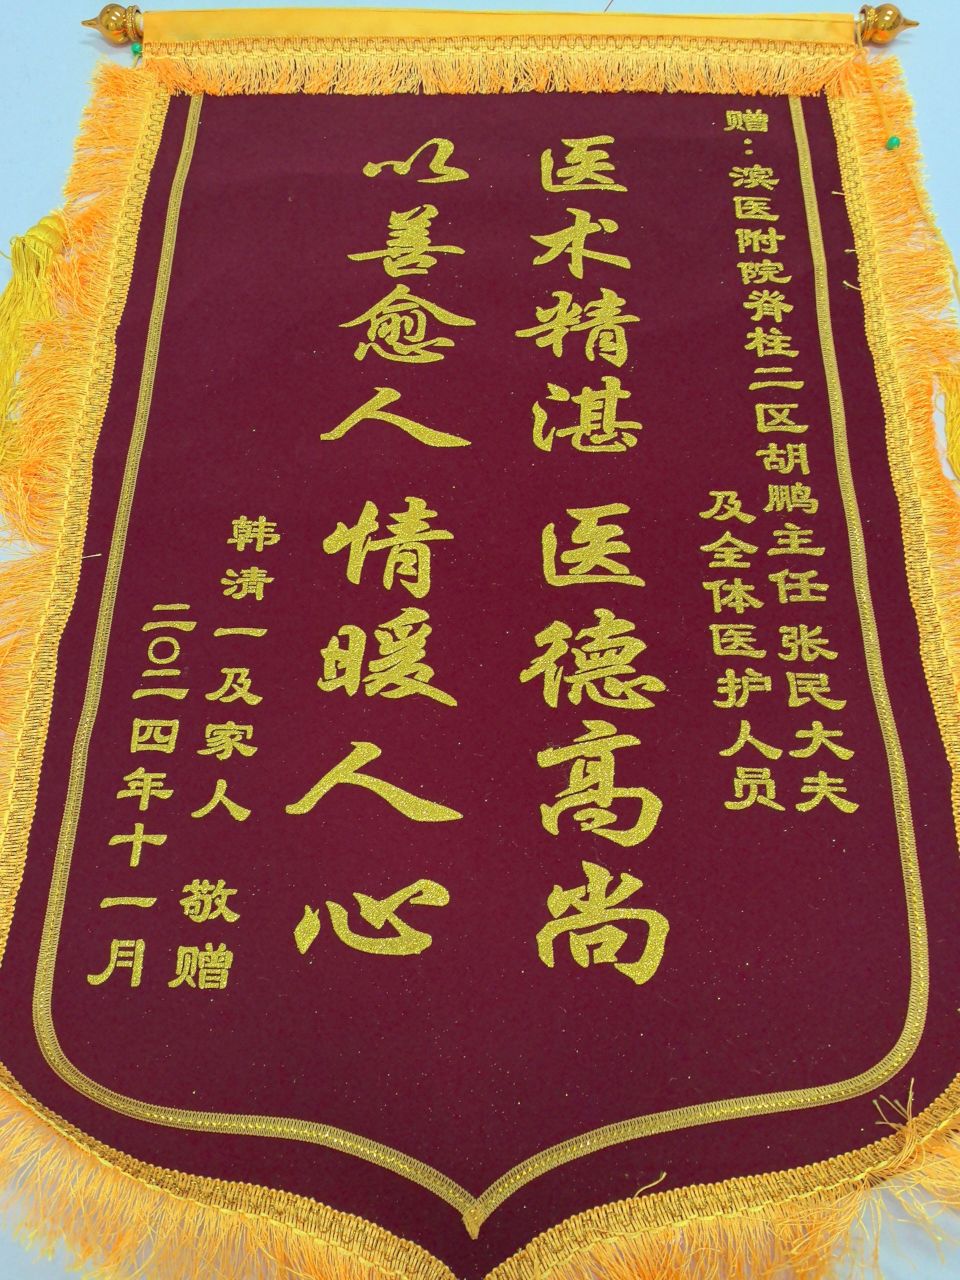 赠：滨医附院脊柱二区胡鹏主任 张民大夫
及全体医护人员
医术精湛 医德高尚
以善愈人 情暖人心
韩清一及家人 敬赠
二〇二四年十一月